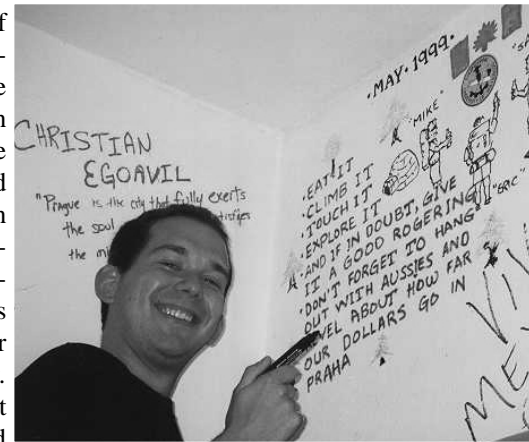 CHRISTIAN
EGOAVIL
"Prague is the city that fully exerts
the soul
the mi
·MAY·1999·
"MIKE"
"ERC"
·EAT IT
·CLIMB IT
·TOUCH IT
·EXPLORE IT
·AND IF IN DOUBT, GIVE
IT A GOOD ROGERING
·DON'T FORGET TO HANG
OUT WITH AUSSIES AND
ABOUT HOW FAR
OUR DOLLARS GO IN
PRAHA
VI
ME